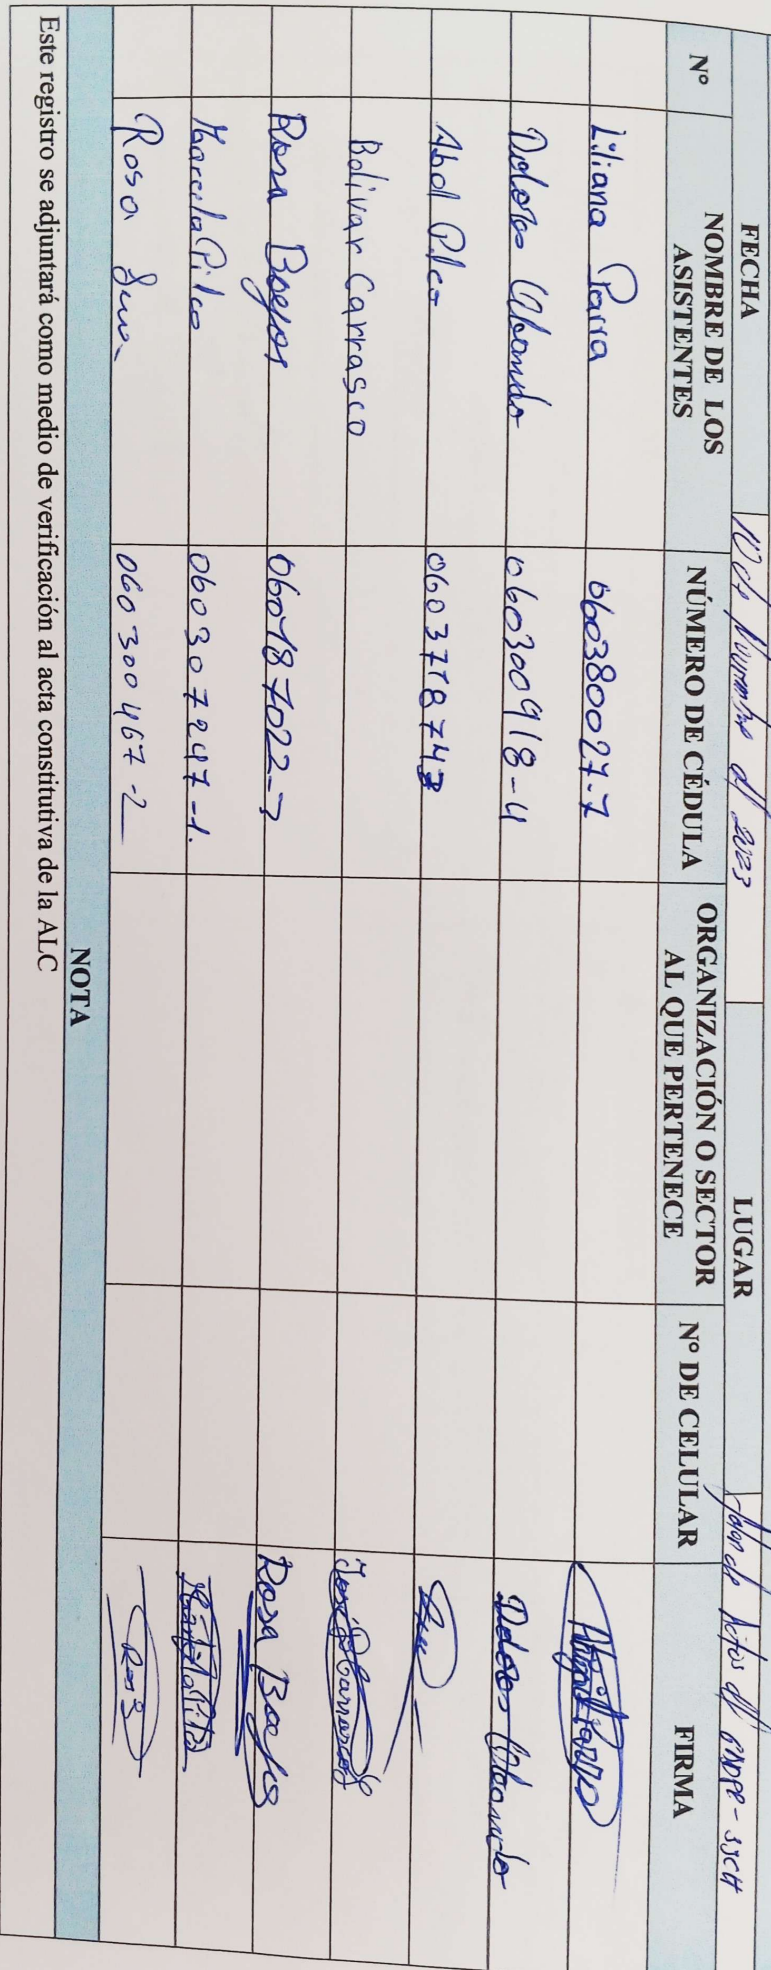 FECHA 10 de Noviembre del 2023 LUGAR Salon de Actos del GADPR - SJCH
Nº NOMBRE DE LOS ASISTENTES NÚMERO DE CÉDULA ORGANIZACIÓN O SECTOR AL QUE PERTENECE Nº DE CELULAR FIRMA
Liliana Parra 060380027-7
Dolores Obando 060300918-4 Dolores Obando
Abel Pilco 060371874
Bolivar Carrasco José Carrasco
Rosa Borjas 060187022-3 Rosa Borjas
Marcela Pilco 060307247-1. Marcela Pilco
Rosa 060300467-2 Rosa
NOTA
Este registro se adjuntará como medio de verificación al acta constitutiva de la ALC